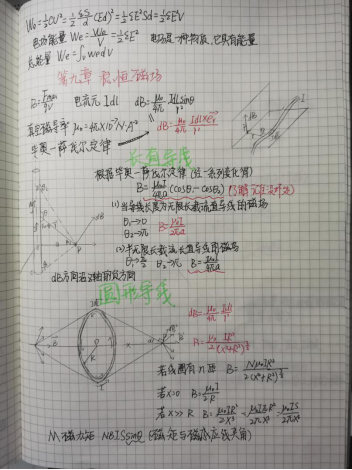 W₀=½CU²=½ εS/d (Ed)²=½εE²Sd=½εE²V
电场能量 We=W₀/V=½εE² 电场是一种物质,它具有能量
总能量 We=∫wedV
第九章 稳恒磁场
B=Fmax/qv 电流元 Idl dB=μ₀/4π Idlsinθ/r²
真空磁导率 μ₀=4π×10⁻⁷N·A⁻² dB=μ₀/4π Idl×er/r²
毕奥一萨伐尔定律
长直导线
根据毕奥一萨伐尔定律
B=μ₀I/4πa (cosθ₁-cosθ₂)
(1)当导线长度为无限长载流直导线的磁场
θ₁→0
θ₂→π B=μ₀I/2πa
(2)半无限长载流长直导线的磁场
θ₁→π/2 θ₂→π B=μ₀I/4πa
圆形导线
dB=μ₀/4π Idl/r²
B=μ₀/2 IR²/(x²+R²)^3/2
若线圈有n匝 B=Nμ₀IR²/2(x²+R²)^3/2
若x=0 B=μ₀I/2R
若x>>R B=μ₀IR²/2x³=μ₀IπR²/2πx³=μ₀IS/2πx³
M磁力矩 NBISsinφ (磁矩与磁感应线夹角)